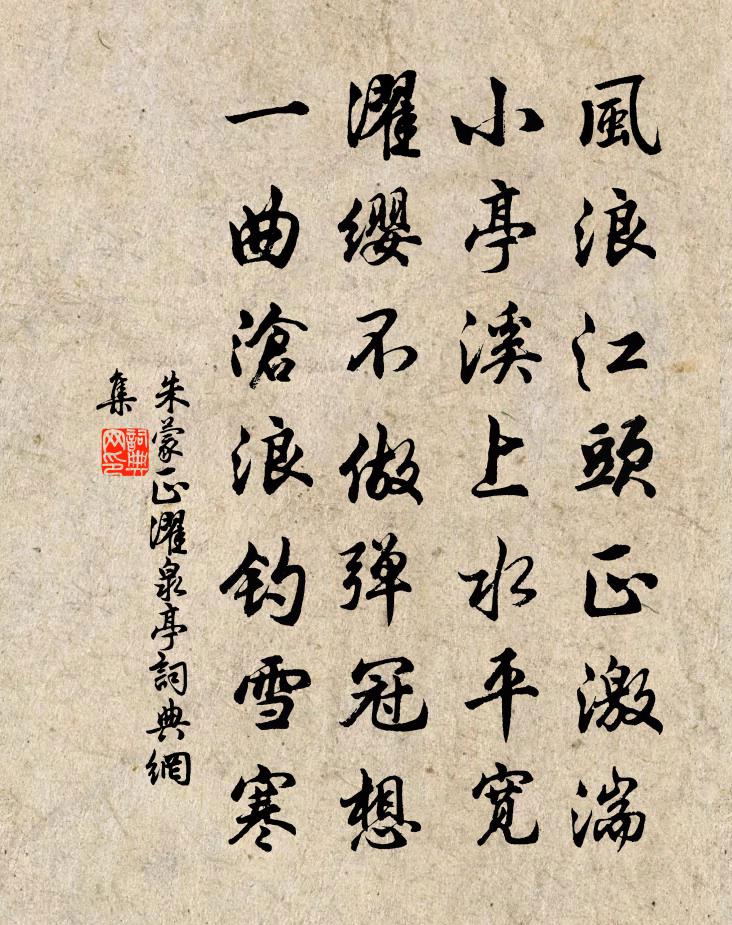 風浪江頭正激湍
小亭溪上水平寬
濯缨不做弹冠想
一曲滄浪钓雪寒
朱蒙正濯泉亭詞典網
集
詞典
网印